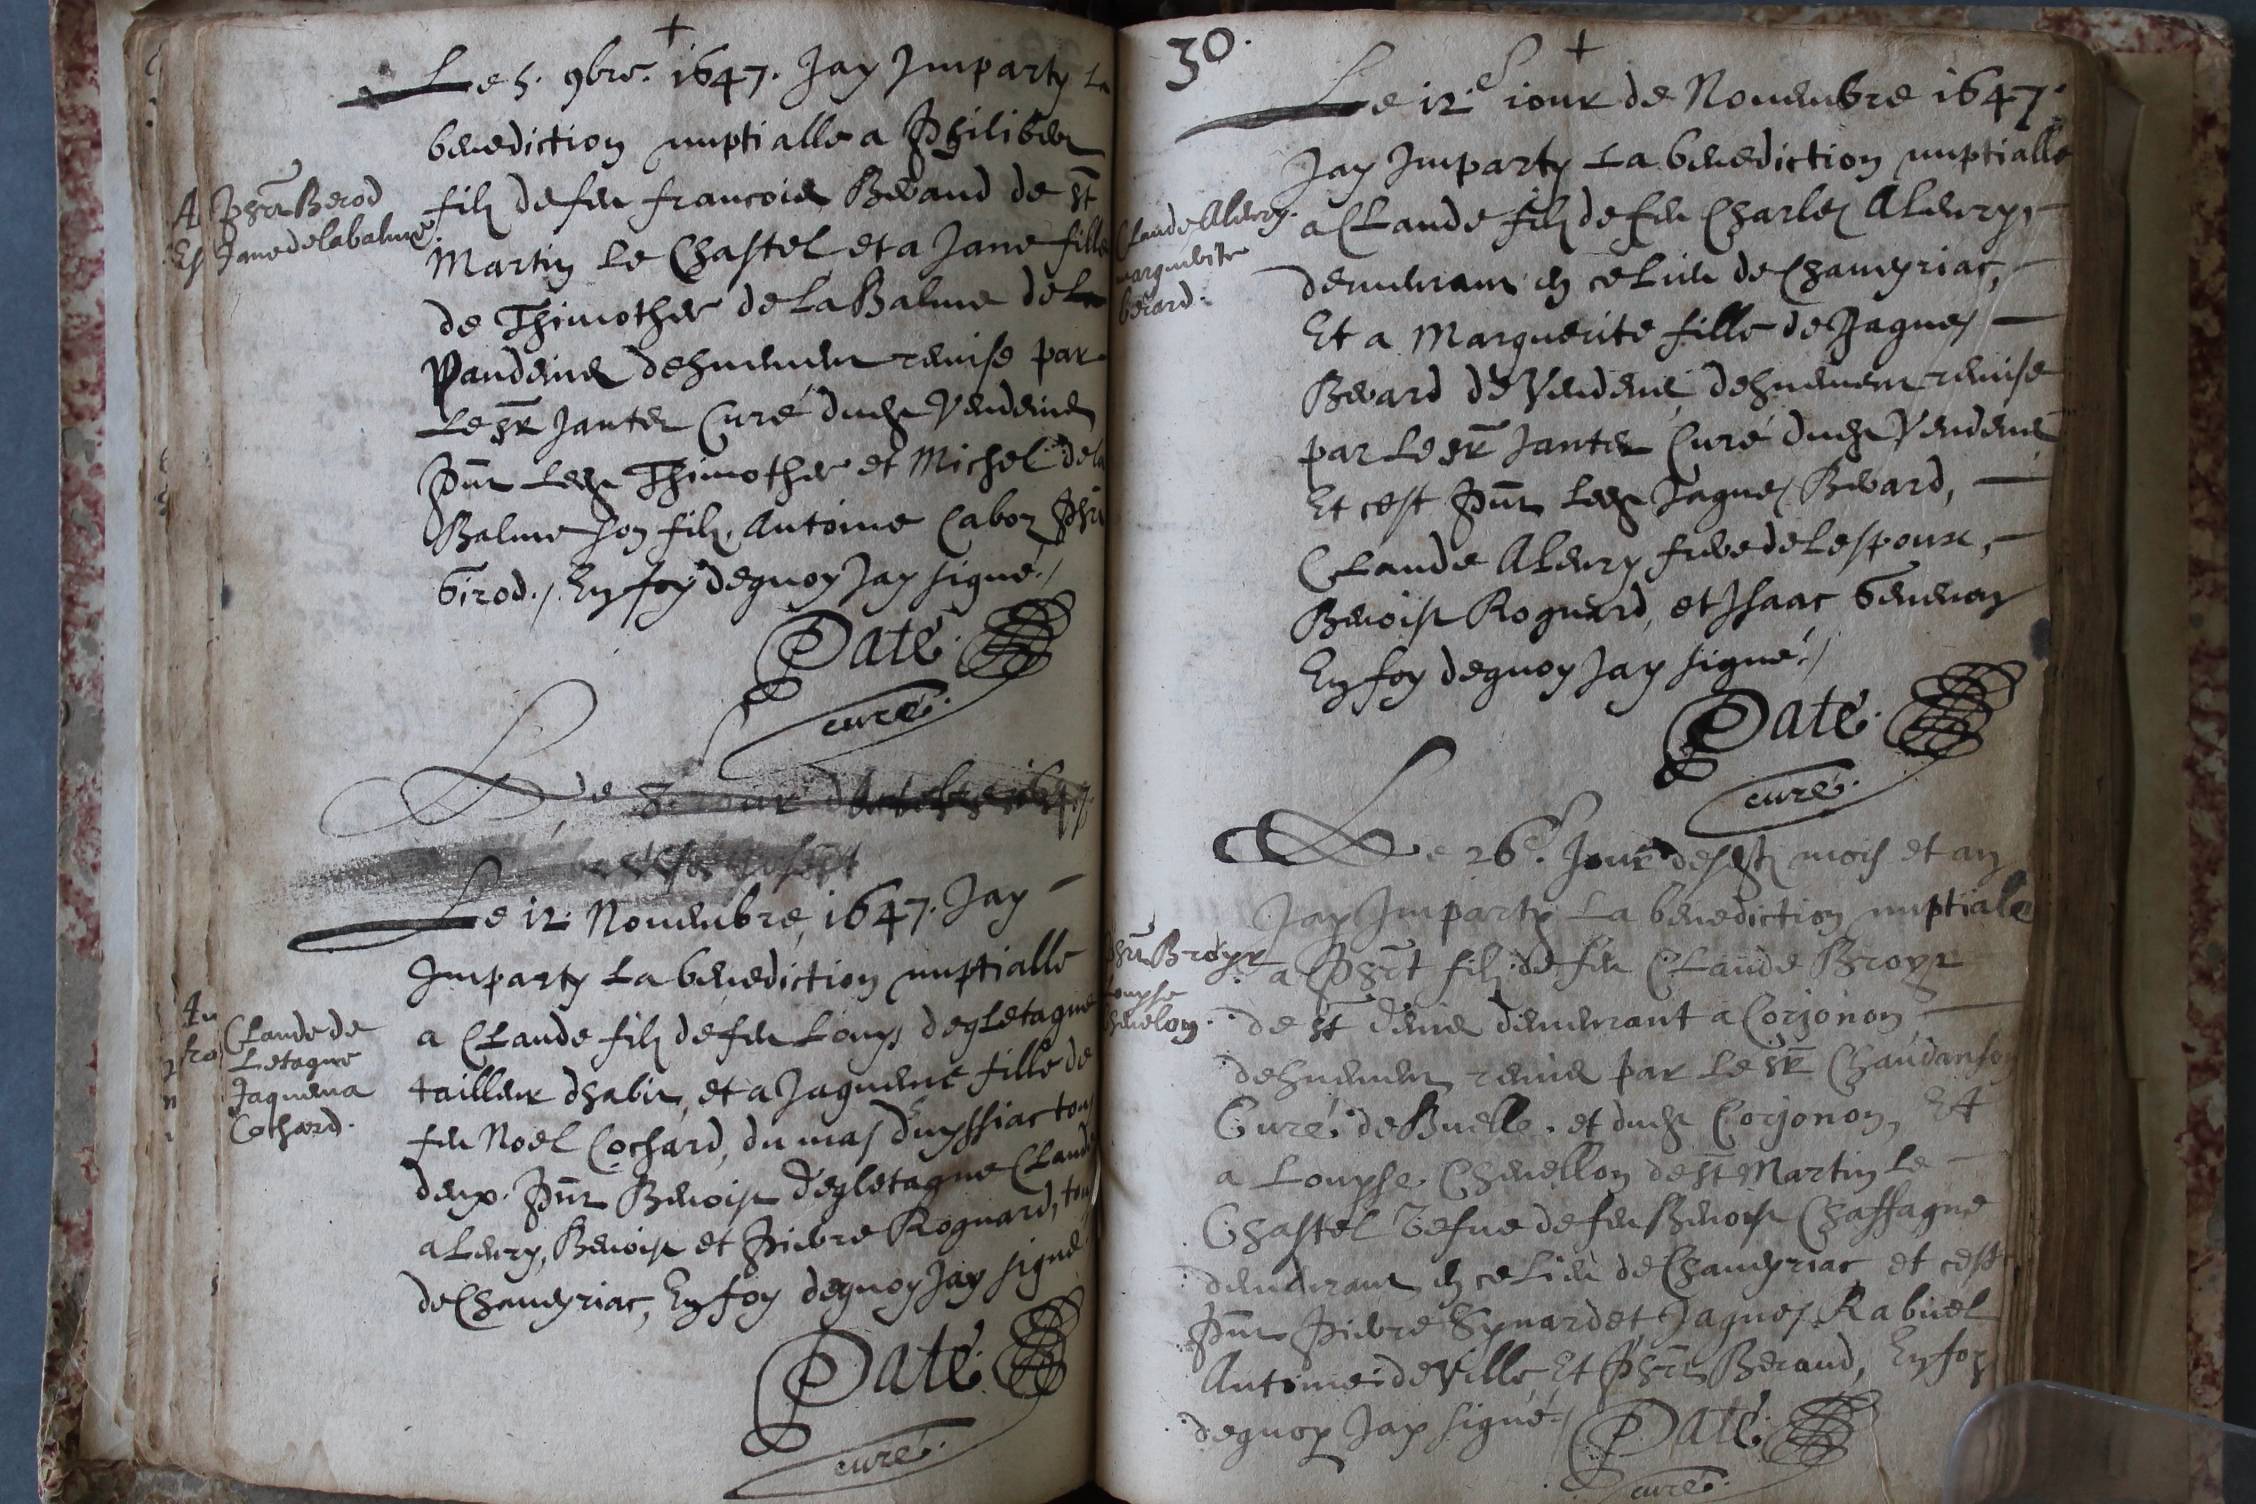 +
Le 5. 9bre. 1647. Jay Imparty La
benediction nuptialle a Philiber
filz de feu francois Beraud de st
Martin Le Chastel et a Jane fille
de Thimothee de La Balme de
Vandeins dehuemen remise par
Le sr Jantet Curé dudt Vendeins
pnt Ledt Thimothee et Michel de la
Balme son filz, Antoine Caboz Phrt
Girod./ En foy dequoy Jay signé./
Daté.
curé.
Phrt Berod
Jane de la balme
Le 8 iour
Le 12. Novembre, 1647. Jay
Imparty La benediction nuptialle
a CLaude filz de feu Louys degletagne
tailleur dhabit, et a Jaquemé fille de
feu Noel Cochard, du mas tous
deux. pnt Benoist degletagne CLaude
aLeury, Benoist et Pierre Roguard, tous
de Chaveyriac, En foy dequoy Jay signé
Daté.
curé.
CLaude de
Letagne
Jaquema
Cothard.
30.
+
Le 12.e iour de Novembre 1647.
Jay Imparty La benediction nuptialle
a CLaude filz de feu Charles ALeury,
demeurant en ce Lieu de Chaveyriac,
Et a Marguerite fille de Jaques
Berard de Vendens, dehuement remise
par Le sr Jantet Curé dudt Vendens
Et cest pnt Ledt Jaques Berard,
CLaude ALeury frere de Lespoux,
Benoist Roguard, et Isaac Gevenay
En foy dequoy Jay signé./
Daté.
curé.
Claude ALeury.
marguerite
berard.
Le 26e. Jour desdt mois et an
Jay Imparty La benediction nuptiale
a Phrt filz de feu CLaude Broyr
de st Denis demeurant a Corjonon
dehuemen remis par Le sr Chaudanson
Curé de Buelle. et dudt Corjonon, Et
a Louyse. Chevellon de st Martin Le
Chastel vefue de feu Benoist Chassagne
demeurant en ce Lieu de Chaveyriac et cest
pnt Pierre Synard et Jaques Rabuel
Antoine deVille, Et Phrt Beraud, En foy
dequoy Jay signé./ Daté.
curé.
Phrt Broyr
Louyse
Chevelon.